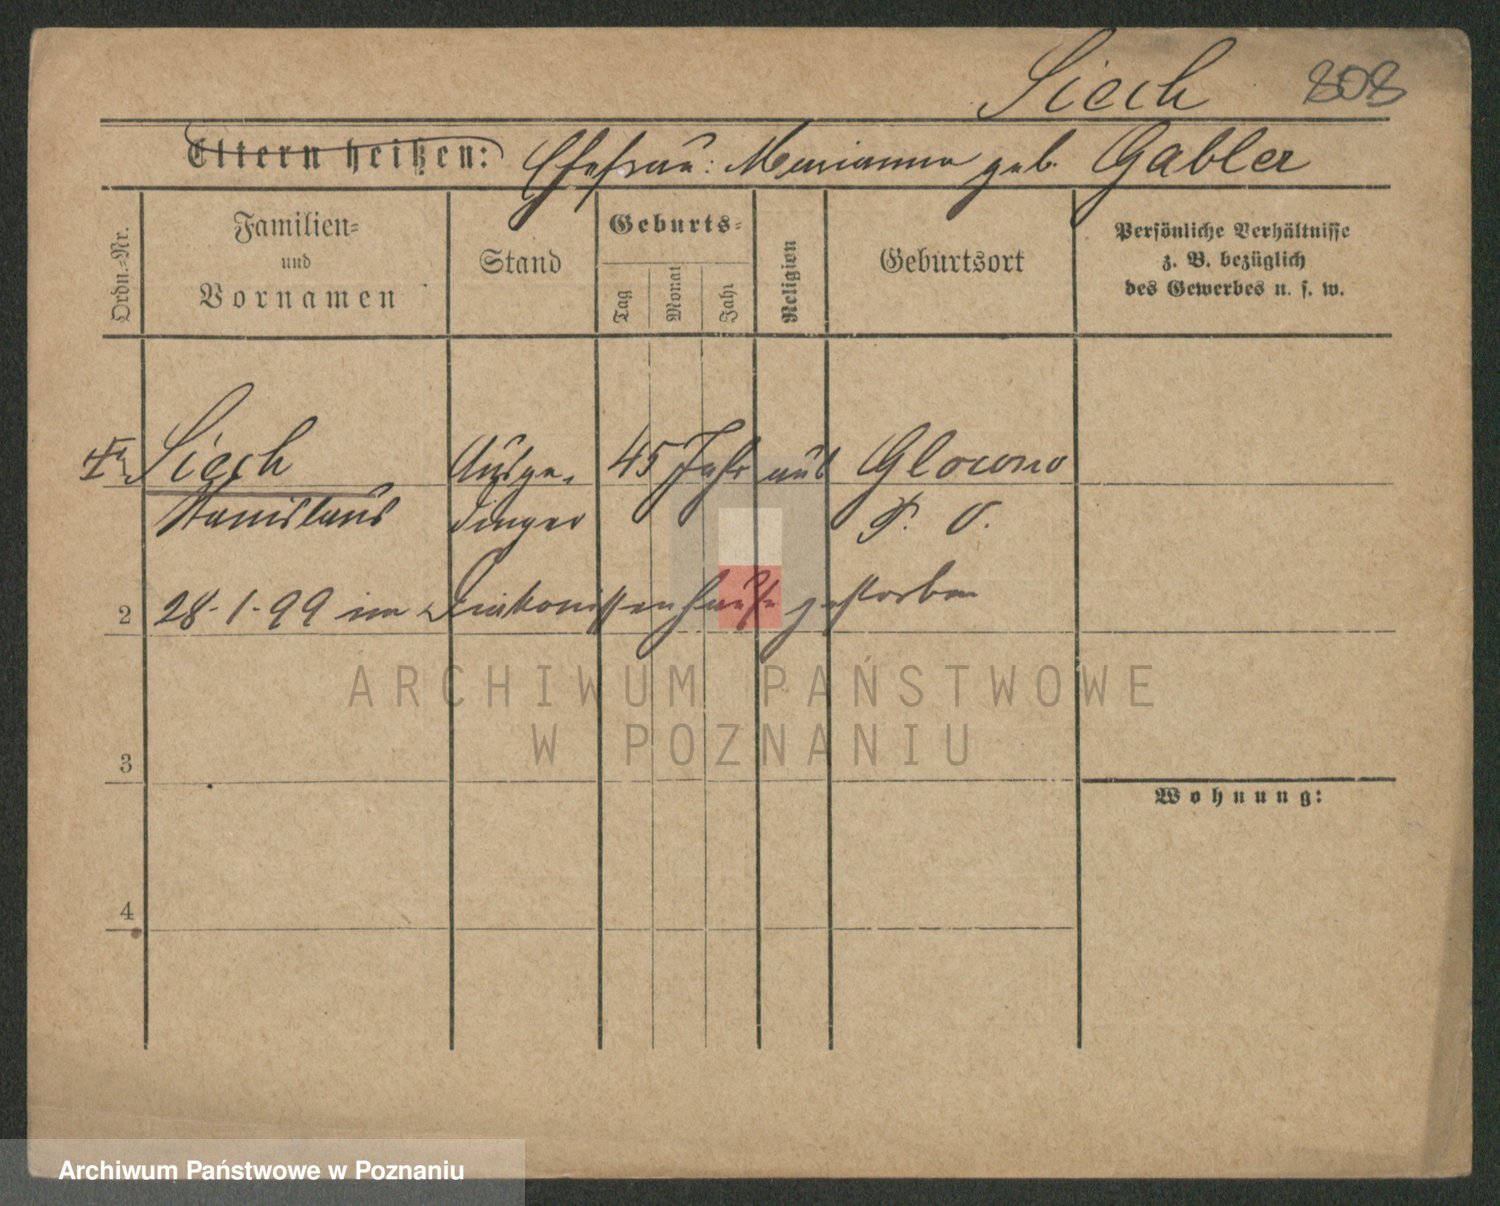 Siech 808
Eltern heißen: Ehefrau: Marianna geb. Gabler
Ordn.-Nr.
Familien- und Vornamen
Stand
Geburts-
Tag
Monat
Jahr
Religion
Geburtsort
Persönliche Verhältnisse
z. B. bezüglich
des Gewerbes u. s. w.
Siech Ausge- 45 Jahr aus Glowno
Stanislaus dinger P. O.
2 28-1-99 im Diakonissenhause gestorben
ARCHIWUM PAŃSTWOWE
W POZNANIU
3
Wohnung:
4
Archiwum Państwowe w Poznaniu